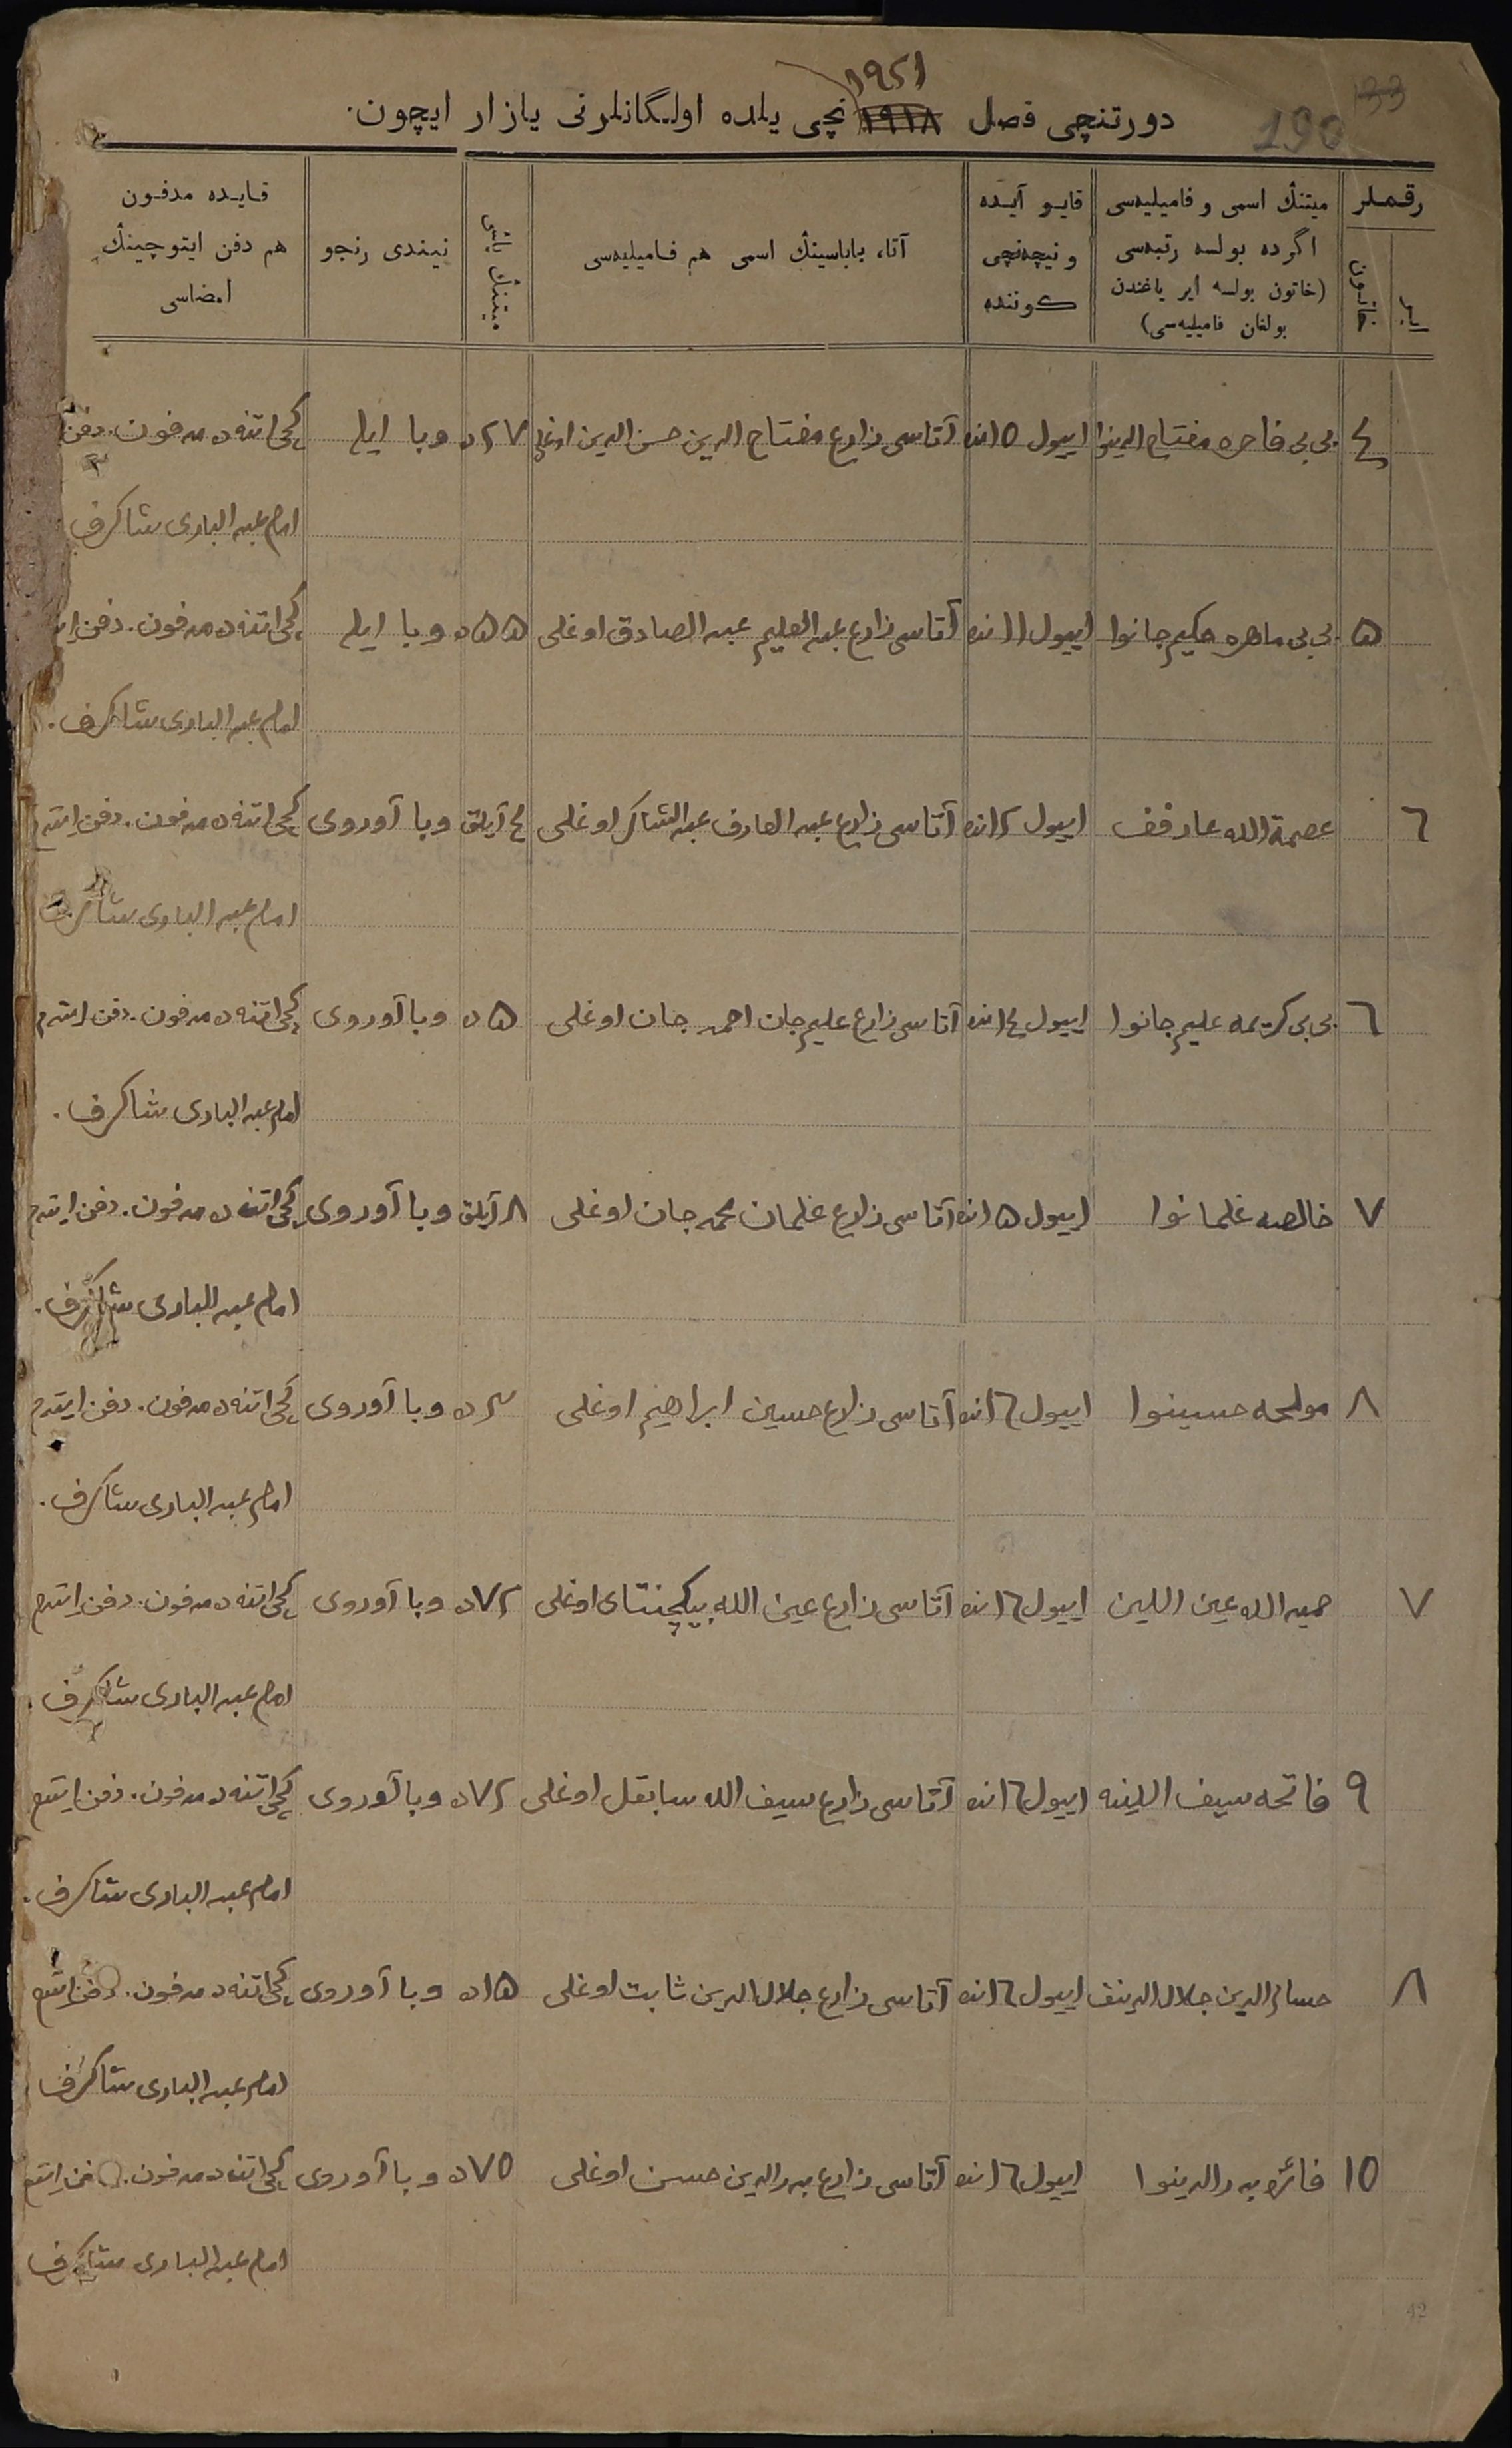 1921
190
133
دورتنچی فصل ١٩١٨ نچی یلده اولـگانلرنی یازار ایچون.
رقـملر
ایر
خاتون
میتنڭ اسمی و فامیلیه‌سی
اگرده بولسه رتبه‌سی
(خاتون بولسه ایر یاغندن
بولغان فامیلیه‌سی)
قایـو آیـده
و نیچه‌نچی
کـوننده
آتا، باباسینڭ اسمی هم فـامیلیه‌سی
میتنڭ یاشی
نیندی رنجو
قـایـده مدفـون
هم دفن ایتوچینڭ
امضاسی
٤ بی بی فاخره مفتاح الدینوا ایيول ١٥نده آتاسی زارع مفتاح الدین حسن الدین اوغلی ٢٧ ده وبا ایله کچی اتنه ده مدفون. دفن
امام عبد الباری شاکرف
٥ بی بی ماهره حکیم جانوا ایيول ١١نده آتاسی زارع عبد العلیم عبد الصادق اوغلی ٥٥ ده وبا ایله کچی اتنه ده مدفون. دفن
امام عبد الباری شاکرف.
٦ عصمة الله عارفف ایيول ١٢نده آتاسی زارع عبد العارف عبد الشاکر اوغلی ٤ آیلق وبا آوروی کچی اتنه ده مدفون. دفن ایتدم
امام عبد الباری شاکرف
٦ بی بی کریمه علیم جانوا ایيول ١٤نده آتاسی زارع علیم جان احمد جان اوغلی ٥ ده وبا آوروی کچی اتنه ده مدفون. دفن ایتدم
امام عبد الباری شاکرف.
٧ خالصه غلمانوا ایيول ١٥نده آتاسی زارع غلمان محمد جان اوغلی ٨ آیلق وبا آوروی کچی اتنه ده مدفون. دفن ایتدم
امام عبد الباری شاکرف.
٨ مولحه حسینوا ایيول ١٦نده آتاسی زارع حسین ابراهیم اوغلی ٣ ده وبا آوروی کچی اتنه ده مدفون. دفن ایتدم
امام عبد الباری شاکرف.
٧ حمید الله عین اللین ایيول ١٦نده آتاسی زارع عین الله بیکچنتای اوغلی ٧٢ ده وبا آوروی کچی اتنه ده مدفون. دفن ایتدم
امام عبد الباری شاکرف.
٩ فاتحه سیف اللینه ایيول ١٦نده آتاسی زارع سیف الله سابقل اوغلی ٧٢ ده وبا آوروی کچی اتنه ده مدفون. دفن ایتدم
امام عبد الباری شاکرف.
٨ حسام الدین جلال الدینف ایيول ١٦نده آتاسی زارع جلال الدین ثابت اوغلی ١٥ ده وبا آوروی کچی اتنه ده مدفون. دفن ایتدم
امام عبد الباری شاکرف
١٥ فائزه بدر الدینوا ایيول ١٦نده آتاسی زارع بدر الدین حسن اوغلی ٧٥ ده وبا آوروی کچی اتنه ده مدفون. دفن ایتدم
امام عبد الباری شاکرف
42